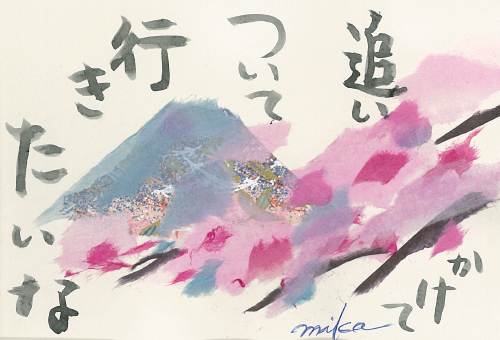 追い
かけて
ついて
行き
たいな
mika